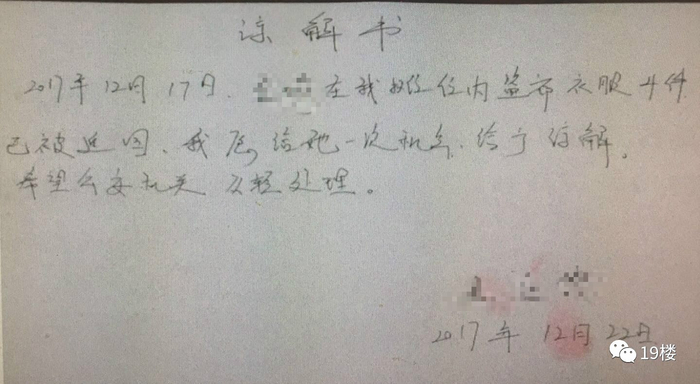 谅解书
2017年12月17日、在我摊位内盗窃衣服4件
已被追回、我愿给她一次机会、给予谅解。
希望公安机关从轻处理。
2017年12月22日
19楼